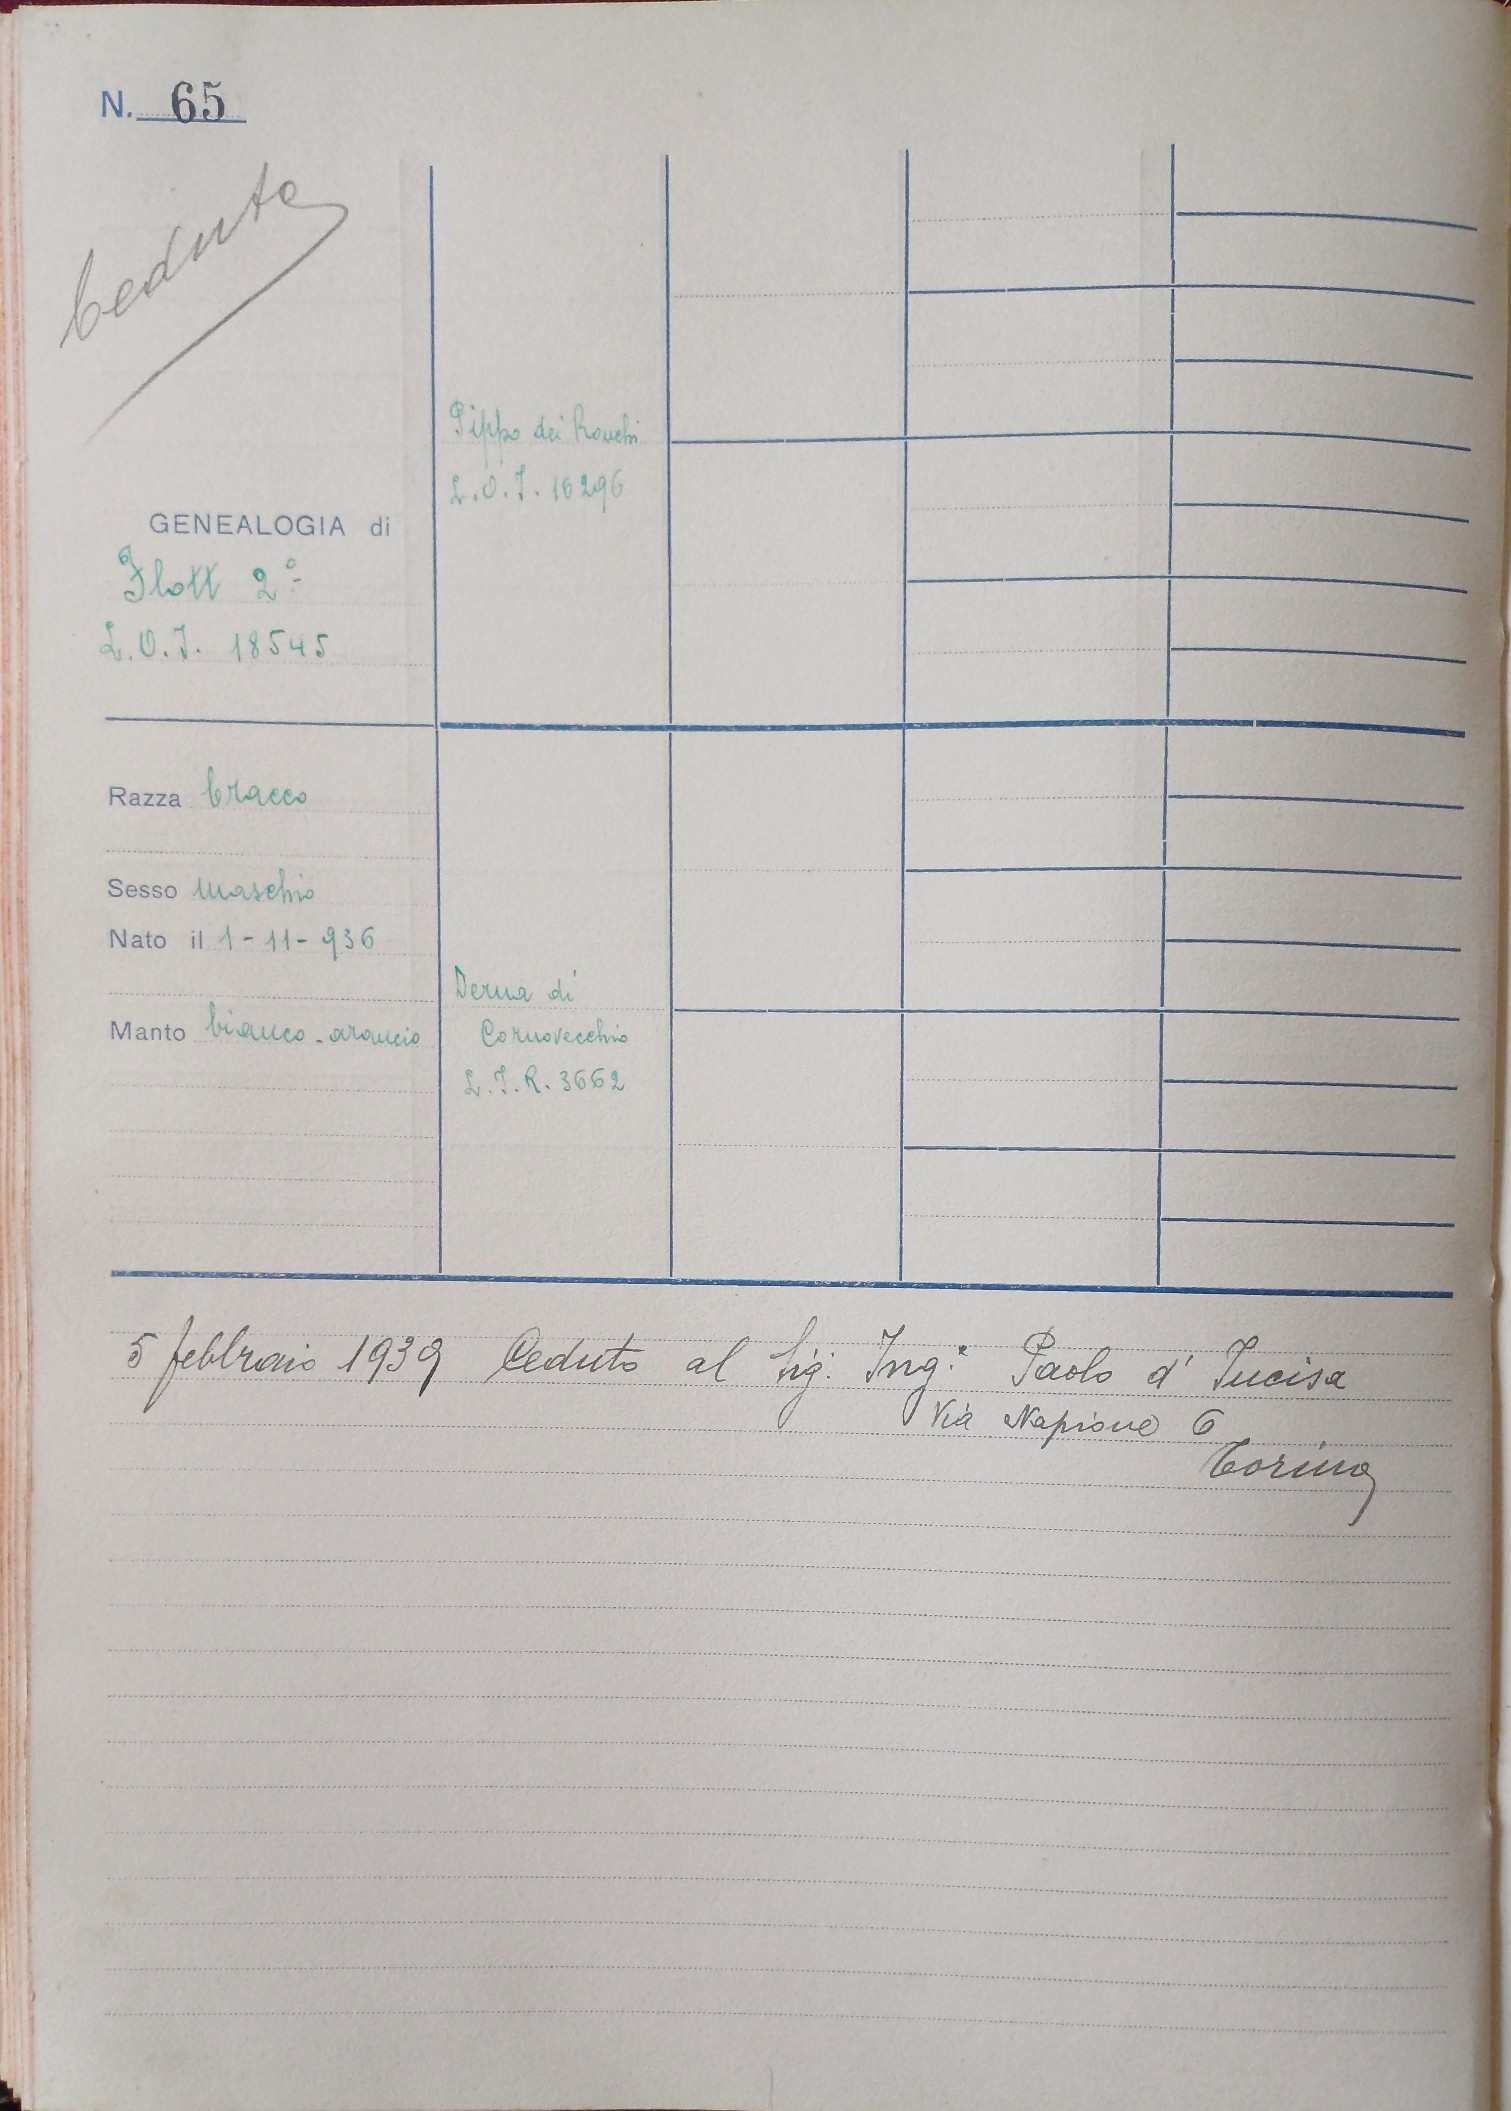 N. 65
Ceduto
Pippo dei Ronchi
L.O.I. 16296
GENEALOGIA di
Flott 2º
L.O.I. 18545
Razza bracco
Sesso maschio
Nato il 1-11-936
Derna di
Manto bianco-arancio
Cornovecchio
L.I.R. 3662
5 febbraio 1939 Ceduto al Sig. Ing. Paolo d'Incisa
Via Napione 6
Torino